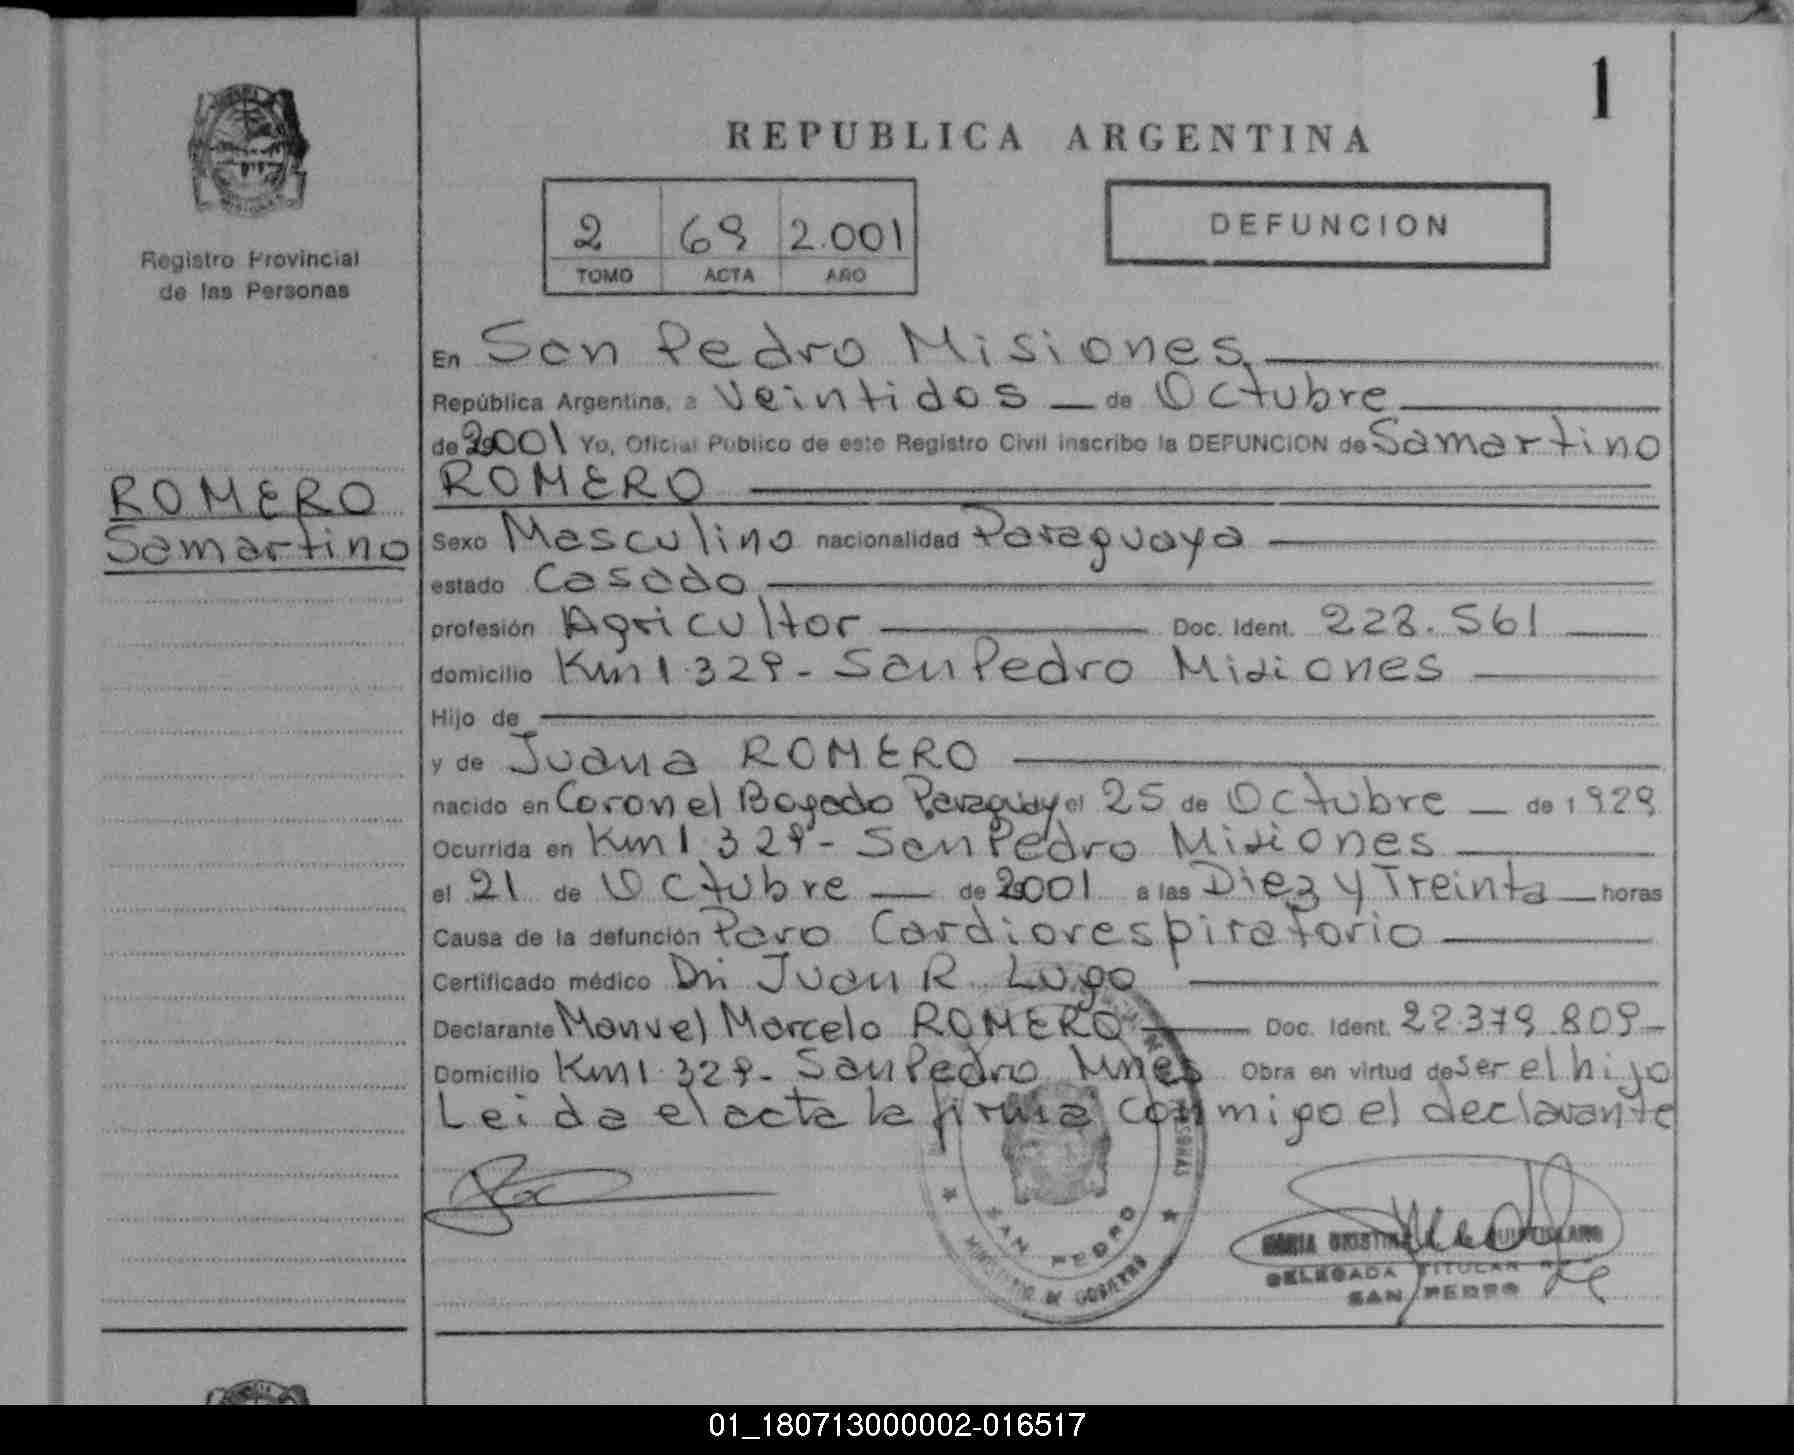 1
REPUBLICA ARGENTINA
2 69 2.001
TOMO ACTA AÑO
DEFUNCION
Registro Provincial
de las Personas
ROMERO
Samartino
En San Pedro Misiones
República Argentina, a Veintidos de Octubre
de 2001 Yo, Oficial Público de este Registro Civil inscribo la DEFUNCION de Samartino
ROMERO
Sexo Masculino nacionalidad Paraguaya
estado Casado
profesión Agricultor Doc. Ident. 228.561
domicilio Km 1.329 - San Pedro Misiones
Hijo de
y de Juana ROMERO
nacido en Coronel Bogado Paraguay el 25 de Octubre de 1929
Ocurrida en Km 1.329 - San Pedro Misiones
el 21 de Octubre de 2001 a las Diez y Treinta horas
Causa de la defunción Paro Cardiorespiratorio
Certificado médico Dr. Juan R. Lugo
Declarante Manuel Marcelo ROMERO Doc. Ident. 22.379.809
Domicilio Km 1.329 - San Pedro Mnes Obra en virtud de ser el hijo
Leida el acta la firma conmigo el declarante
SAN PEDRO
MINISTERIO DE GOBIERNO
MARIA CRISTINA
DELEGADA TITULAR
SAN PEDRO
01_180713000002-016517